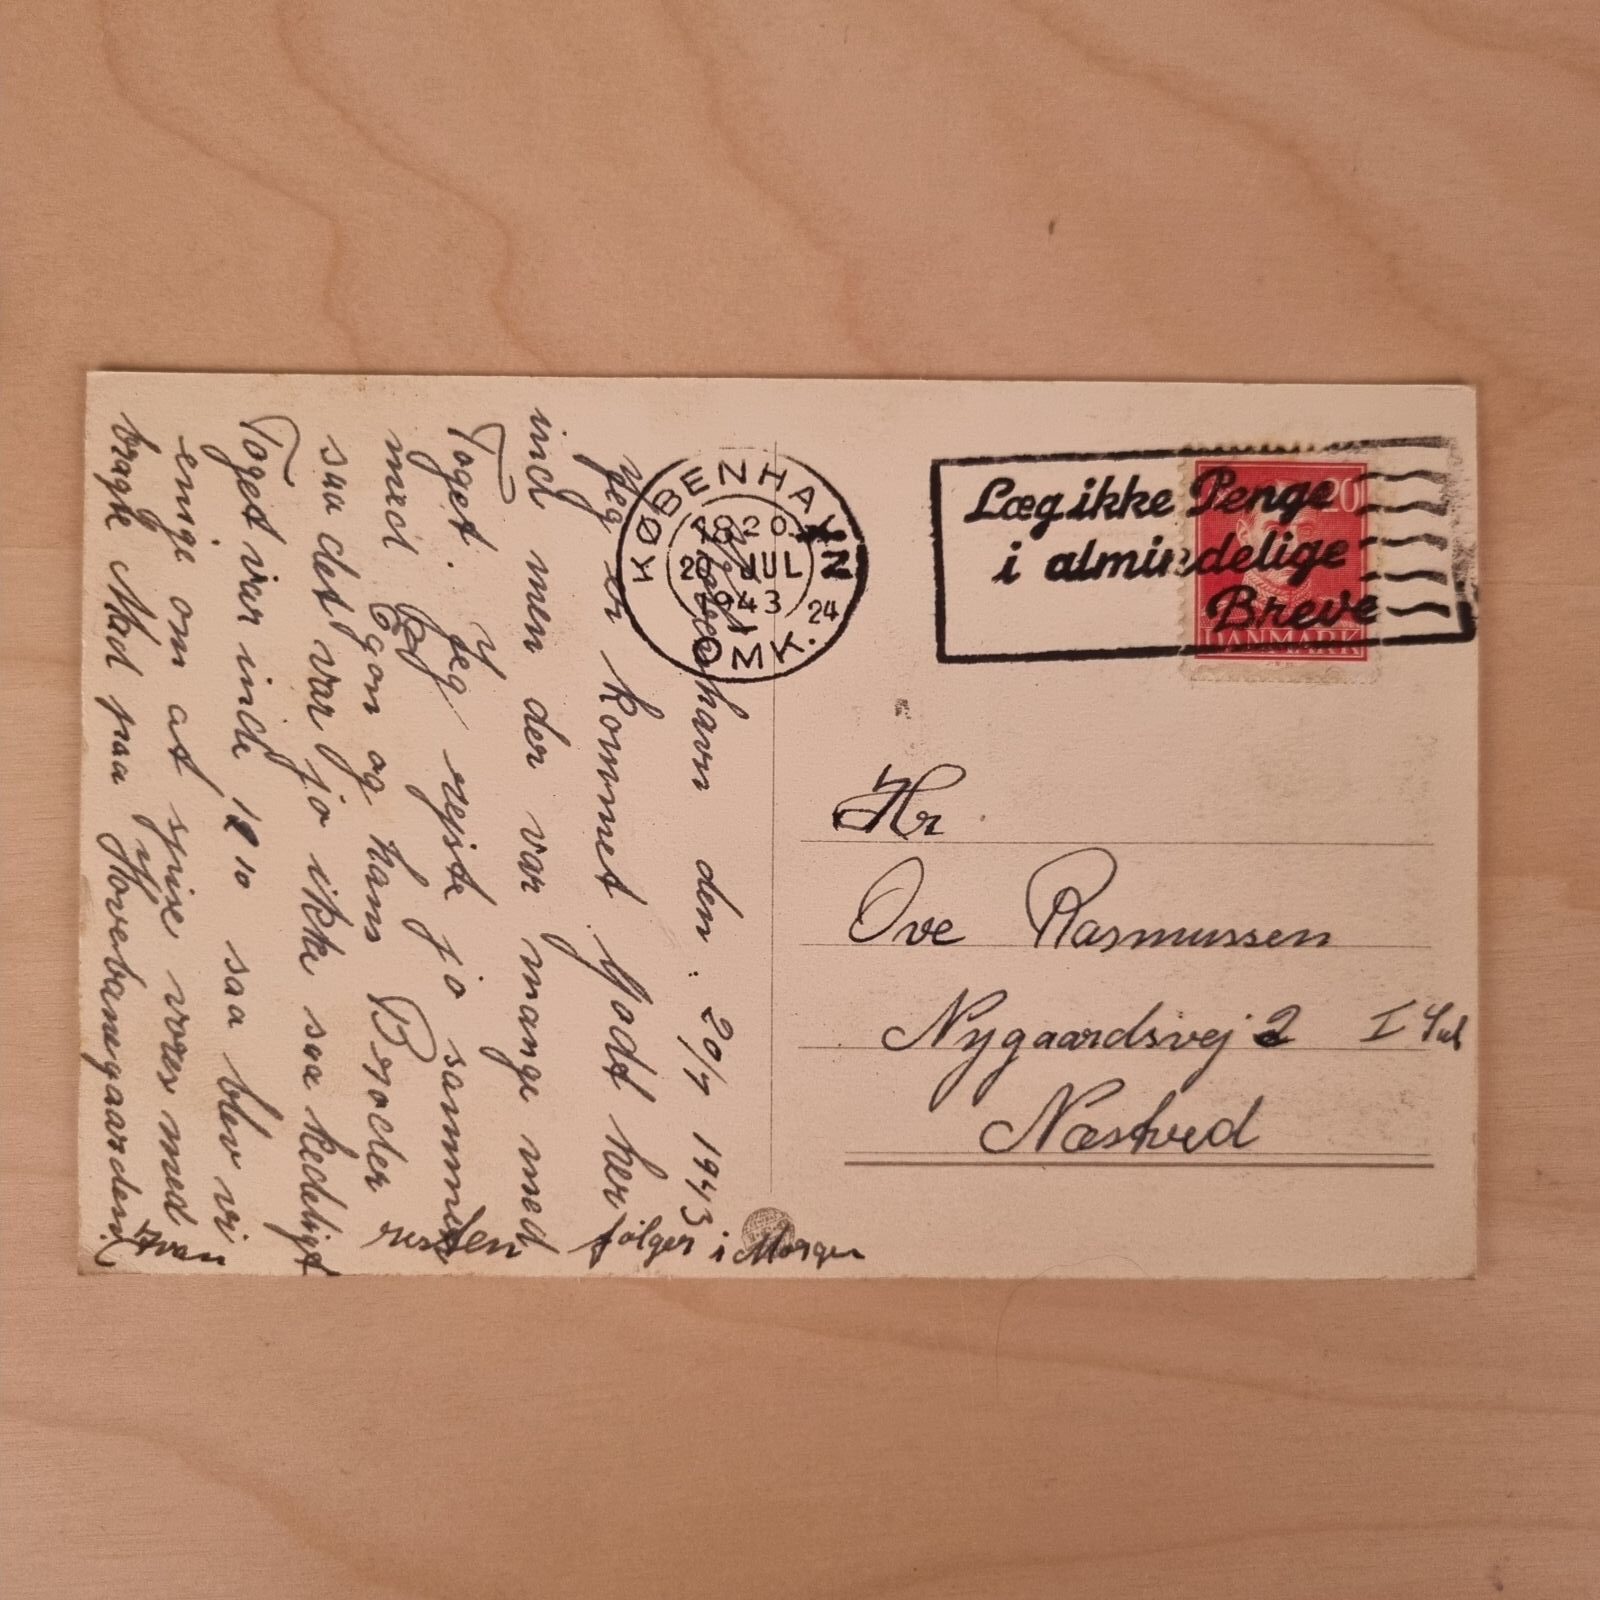 København den. 20/7 1943
Jeg er kommet Godt her
ind men der var mange med
Toget. Jeg rejste jo sammen
med Egon og hans Broder
saa det var jo ikke saa kedeligt
Toget var inde 10 saa blev vi
enige om at spise vores med
bragte Mad paa Hovebanegaarden.
resten følger i Morgen
KØBENHAVN
1820
20 JUL
1943
24
OMK.
Læg ikke Penge
i almindelige
Breve
20
DANMARK
Hr
Ove Rasmussen
Nygaardsvej 2 I Sal
Næstved